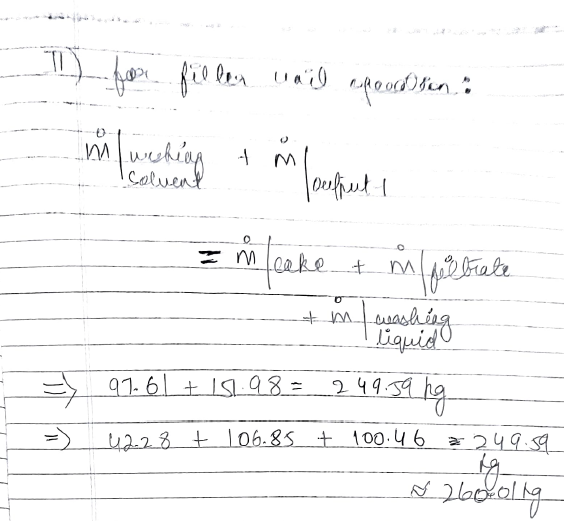 II) for filter unit operation :
ṁ|washing solvent + ṁ|output 1
= ṁ|cake + ṁ|filtrate
+ ṁ|washing liquid
=> 97.61 + 151.98 = 249.59 kg
=> 42.28 + 106.85 + 100.46 = 249.59 kg
≈ 260.01 kg